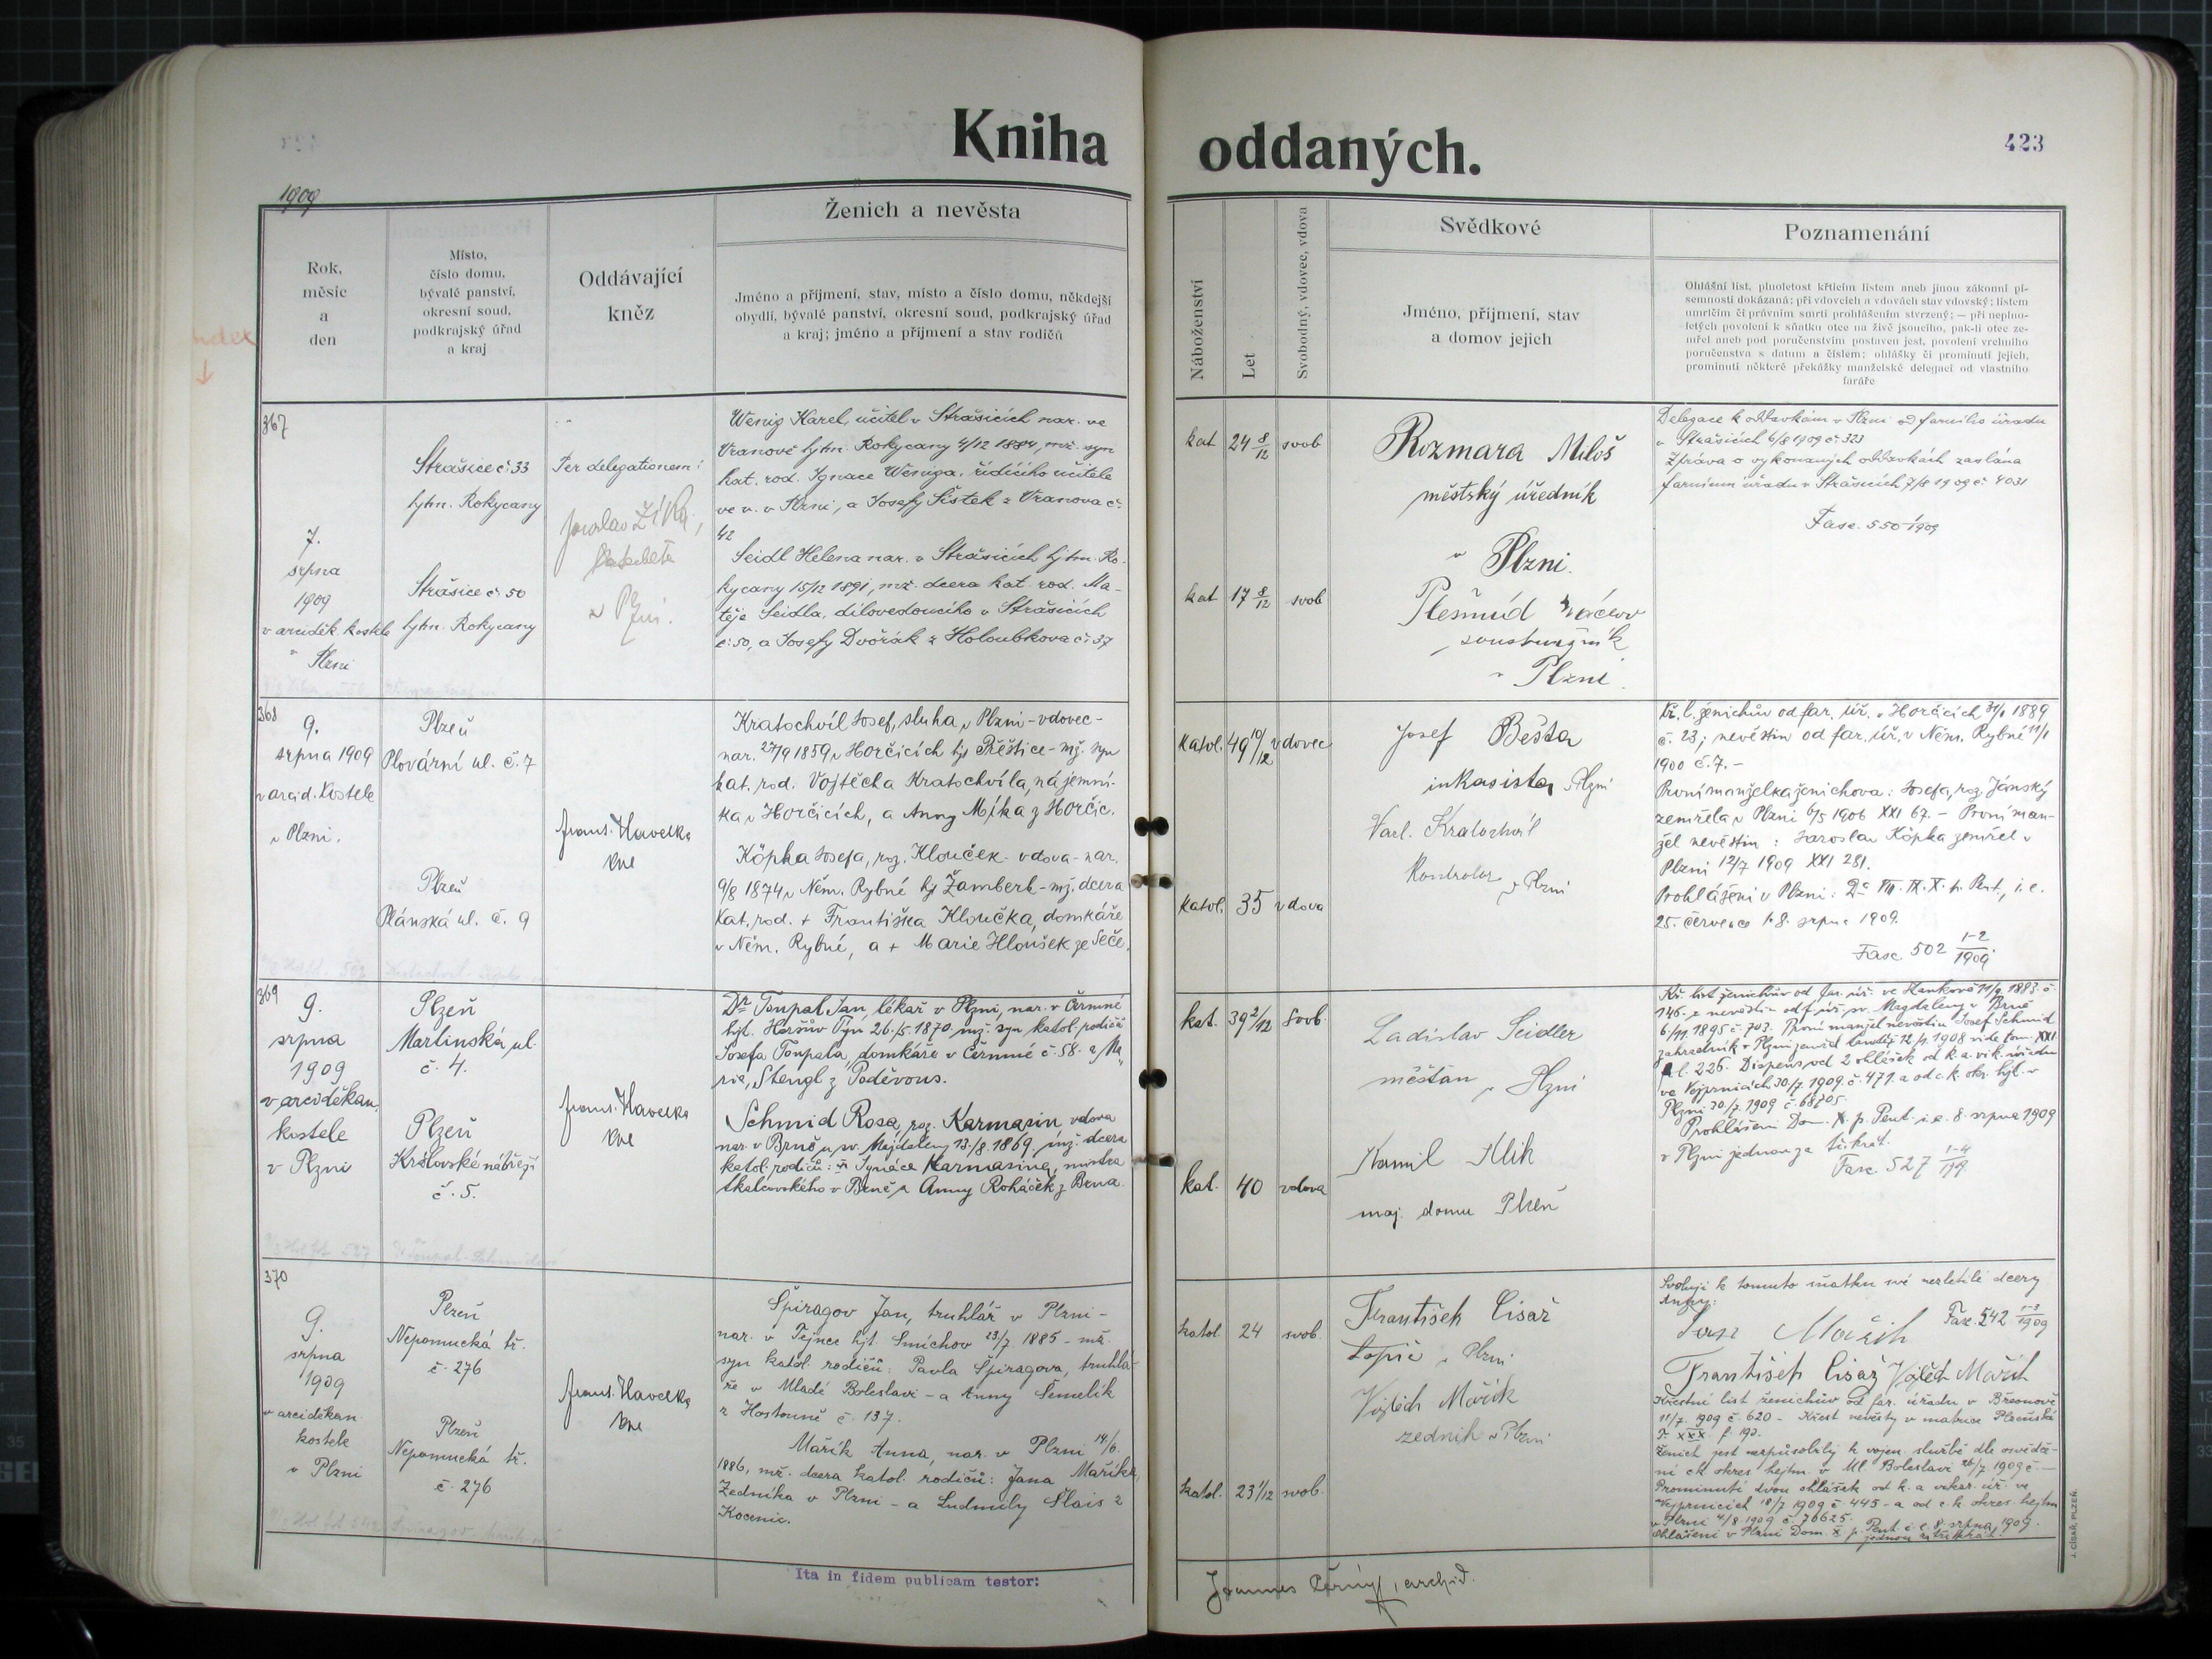 Kniha oddaných.
423
1909
index
Rok,
měsíc
a
den
Místo,
číslo domu,
bývalé panství,
okresní soud,
podkrajský úřad
a kraj
Oddávající
kněz
Ženich a nevěsta
Jméno a příjmení, stav, místo a číslo domu, někdejší
obydlí, bývalé panství, okresní soud, podkrajský úřad
a kraj; jméno a příjmení a stav rodičů
Náboženství
Let
Svobodný, vdovec, vdova
Svědkové
Jméno, příjmení, stav
a domov jejich
Poznamenání
Ohlášní list, plnoletost křtícím listem aneb jinou zákonní pí-
semností dokázaná; při vdovcích a vdovách stav vdovský; listem
umrlčím či právním smrti prohlášením stvrzený; — při neplno-
letých povolení k sňatku otce na živě jsoucího, pak-li otec ze-
mřel aneb pod poručenstvím postaven jest, povolení vrchního
poručenstva s datum a číslem; ohlášky či prominutí jejich,
prominutí některé překážky manželské delegací od vlastního
faráře
367
7.
srpna
1909
v arciděk. kostele
v Plzni
Strašice č. 33
hjtm. Rokycany
Strašice č. 50
hjtm. Rokycany
Per delegationem:
Jaroslav
v Plzni.
Wenig Karel, učitel v Strašicích nar. ve
Vranově hjtm. Rokycany 4/12 1884, mž. syn
kat. rod. Ignace Weniga, řídícího učitele
ve v. v Plzni, a Josefy Šístek z Vranova č.
42
Seidl Helena nar. v Strašicích hjtm. Ro-
kycany 15/12 1891, mž. dcera kat. rod. Ma-
těje Seidla, dílovedoucího v Strašicích
č. 50, a Josefy Dvořák z Holoubkova č. 37
kat 24 8/12 svob
kat 17 8/12 svob
Rozmara Miloš
městský úředník
v Plzni.
v Plzni.
Delegace k oddavkám v Plzni od farního úřadu
v Strašicích 6/8 1909 č. 323
Zpráva o vykonaných oddavkách zaslána
farnímu úřadu v Strašicích 7/8 1909 č. 4031
Fasc. 550 1909
368
9.
srpna 1909
v arcid. kostele
v Plzni.
Plzeň
Plovární ul. č. 7
Plzeň
Plánská ul. č. 9
Frant. Havelka
Kratochvíl Josef, sluha v Plzni - vdovec -
nar. 27/9 1859 v Horčicích hjt Přeštice - mž. syn
kat. rod. Vojtěcha Kratochvíla, nájemní-
ka v Horčicích, a Anny Míka z Horčic.
Köpka Josefa, roz. Klouček - vdova - nar.
9/8 1874 v Něm. Rybné hjt Žamberk - mž. dcera
kat. rod. + Františka Kloučka, domkáře
v Něm. Rybné, a + Marie Hloušek ze Seče.
katol. 49 10/12 vdovec
katol. 35 vdova
Josef Bešta
inkasista v Plzni
Vacl. Kratochvíl
Kontrolor v Plzni
Kř. l. ženichův od far. úř. v Horčicích 31/1 1889
č. 23; nevěstin od far. úř. v Něm. Rybné 11/1
1900 č. 7. -
První manželka ženichova: Josefa, roz. Jánský
zemřela v Plzni 6/5 1906 XXI 67. - První man-
žel nevěstin: Jaroslav Köpka zemřel v
Plzni 12/7 1909 XXI 281.
Prohlášení v Plzni: Dca VIII. IX. X. p. Pent., i. e.
25. července 1. 8. srpna 1909.
Fasc. 502 1-2/1909
369
9.
srpna
1909
v arciděkan.
kostele
v Plzni
Plzeň
Martinská ul.
č. 4.
Plzeň
č. 5.
Frant. Havelka
Dr Toupal Jan, lékař v Plzni, nar. v Čermné
hjt. Horšův Týn 26./5. 1870, mž. syn katol. rodičů
Josefa Toupala, domkáře v Čermné č. 58. a Ma-
rie, Stengl z Poděvous.
Schmid Rosa, roz. Karmasin, vdova
nar. v Brně u sv. Majdaleny 13./8. 1869. mž. dcera
katol. rodičů: Ignáce Karmasina, mistra
tkalcovského v Brně a Anny Roháček z Brna.
kat. 39 2/12 svob.
kat. 40 vdova
Ladislav Seidler
měšťan v Plzni
Kamil Klik
maj. domu Plzeň
Kř. list ženichův od far. úř. ve Stankově 11/9. 1883. č.
146. a nevěstin od f. úř. sv. Magdaleny v Brně
6./11. 1895 č. 703. První manžel nevěstin Josef Schmid
fol. 226. Dispens od 2 ohlášek od k. a. vik. úřadu
ve Vejprnicích 30./7. 1909. č. 471. a od c. k. okr. hjt. v
Plzni 30./7. 1909 č. 68705.
Prohlášeni Dom. X. p. Pent. i. e. 8. srpna 1909
v Plzni jednou za třikrát.
Fasc. 527 1-4/1909
370
9.
srpna
1909
v arciděkan.
kostele
v Plzni
Plzeň
Nepomucká tř.
č. 276
Plzeň
Nepomucká tř.
č. 276
Frant. Havelka
Špiragov Jan, truhlář v Plzni -
nar. v Tejnce hjt. Smíchov 23/7. 1885 - mž.
syn katol. rodičů: Pavla Špiragova, truhlá-
ře v Mladé Boleslavi - a Anny Šemelík
z Hostouně č. 137.
Mařík Anna, nar. v Plzni 14/6.
1886, mž. dcera katol. rodičů: Jana Maříka,
Zedníka v Plzni - a Ludmily Šlais z
Kocenic.
katol. 24 svob.
katol. 23 1/12 svob.
František Císař
topič v Plzni
Vojtěch Mařík
zedník v Plzni
Svoluji k tomuto sňatku své nezletilé dcery
Anny:
Fasc. 542 1-3/1909
Mařík
František Císař Vojtěch Mařík
Křestní list ženichův od far. úřadu v Břevnově
11/7. 1909 č. 620 - Křest nevěsty v matrice Plzeňské
T. XXX. f. 192.
Ženich jest nezpůsobilý k vojen. službě dle osvědče-
ní ck okres. hejtm. v Ml. Boleslavi 26/7 1909 č. -
Prominutí dvou ohlášek od k. a vikar. úř. ve
Vejprnicích 18/7 1909 č. 445 - a od c. k. okres. hejtm
v Plzni 4/8 1909 č. 76625.
Ohlášeni v Plzni Dom. X. p. Pent. i. e. 8. srpna, 1909.
jednou za třikrát.
Ita in fidem publicam testor:
Joannes Černý, archid.
J. CÍSAŘ, PLZEŇ.